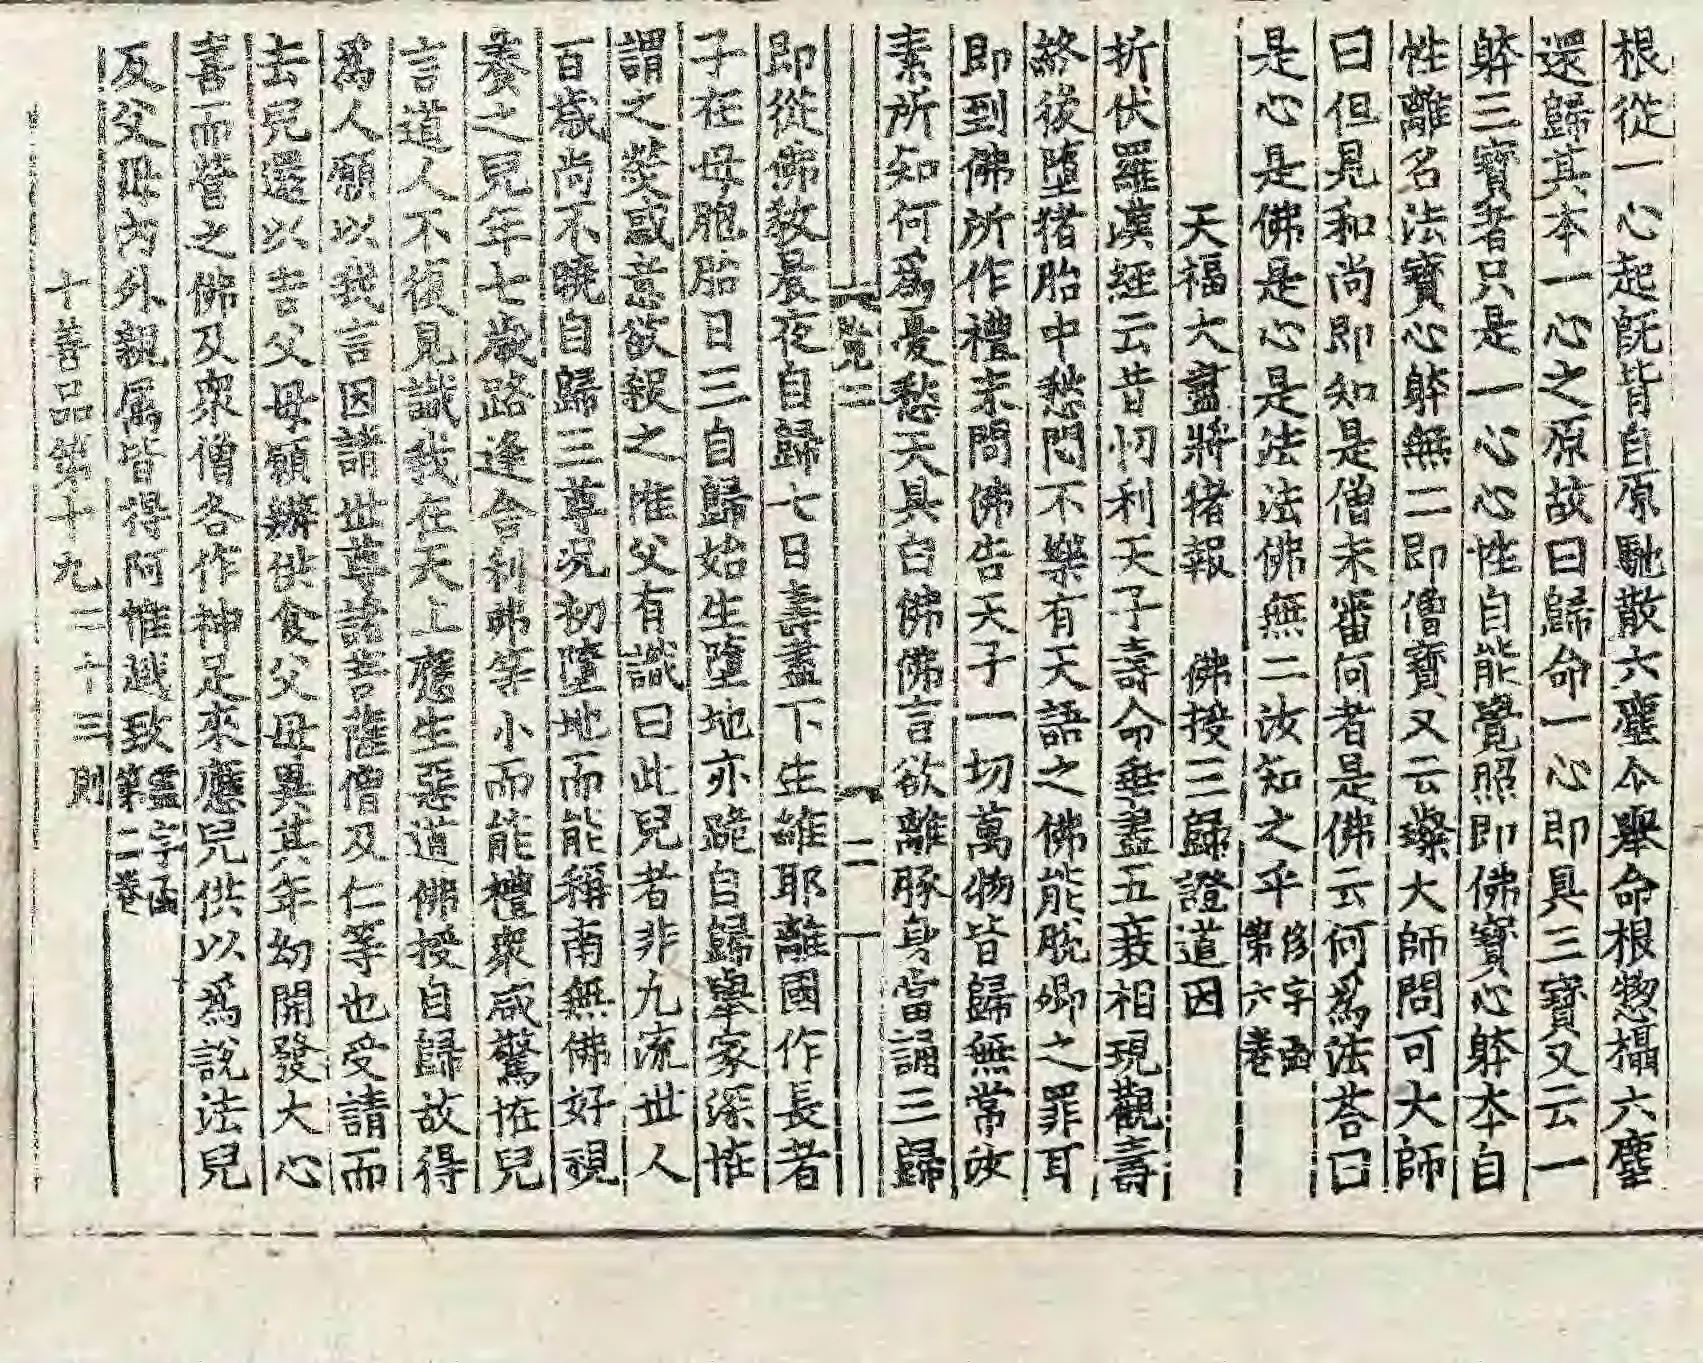 根從一心起旣皆自原馳散六塵今擧命根㹅攝六塵
還歸其本一心之原故曰歸命一心即具三寶又云一
躰三寶者只是一心心性自能覺照即佛寶心躰本自
性離名法寶心躰無二即僧寶又云璨大師問可大師
曰但見和尚即知是僧未審何者是佛云何爲法荅曰
是心是佛是心是法法佛無二汝知之乎 俢字函第六卷
天福大盡將猪報 佛授三歸證道因
折伏羅漢經云昔忉利天子壽命垂盡五衰相現觀壽
終後墮猪胎中愁悶不樂有天語之佛能脫卿之罪耳
即到佛所作禮未問佛告天子一切萬物皆歸無常汝
素所知何爲憂愁天具白佛佛言欲離豚身當誦三歸
覽二 二
即從佛敎晨夜自歸七日壽盡下生維耶離國作長者
子在母胞胎日三自歸始生墮地亦跪自歸擧家深恠
謂之熒惑意欲殺之唯父有識曰此兒者非凡流世人
百歲尚不曉自歸三尊況初墮地而能稱南無佛好視
養之兒年七歲路逢舍利弗等小而能禮衆咸驚恠兒
言道人不復見識我在天上應生惡道佛授自歸故得
爲人願以我言因請世尊諸菩薩僧及仁等也受請而
去兒還以告父母願辦供食父母異其年幼開發大心
喜而營之佛及衆僧各作神足來應兒供以爲說法兒
及父母內外親属皆得阿惟越致 盖字函第二卷
十善品第十九二十三則